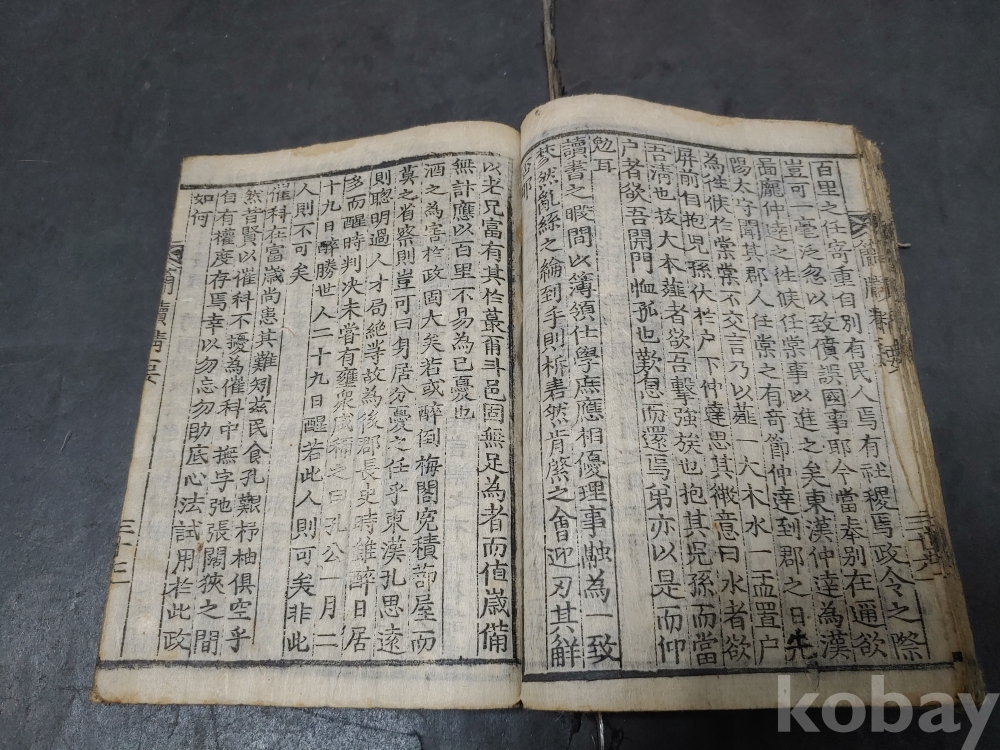 百里之任寄重自別有民人焉有社稷焉政令之際
豈可一毫泛忽以致僨誤國事耶今當奉別在邇欲
面龐仲達之往候任棠事以進之矣東漢仲達為漢
陽太守聞其郡人任棠之有奇節仲達到郡之日先
為往候於棠棠不交言乃以薤一大本水一盂置户
屏前自抱兒孫伏於户下仲達思其微意曰水者欲
吾淸也拔大本薤者欲吾擊強族也抱其兒孫而當
户者欲吾開門恤孤也歎息而還焉弟亦以是而仰
勉耳
讀書之暇問以簿領仕學庶應相優理事融為一致
棼然亂絲之綸到手則析砉然肯綮之會迎刃其解
以老兄富有其於蕞爾斗邑固無足為者而值歲備
無計應以百里不易為已憂也
酒之為害於政固大矣若或醉倒梅閣寃積蔀屋而
糞之省察則豈可曰身居分憂之任乎東漢孔思遠
則聰明過人才局絶等故為後郡長史時雖醉日居
多而醒時判決未嘗有壅衆咸稱之曰孔公一月二
十九日醉勝世人二十九日醒若此人則可矣非此
人則不可矣
催科在富歲尚患其難矧兹民食孔艱杼柚俱空乎
然昔賢以催科不擾為催科中撫字弛張闊狹之間
自有權度存焉幸以勿忘勿助底心法試用於此政
如何
簡牘精要
kobay